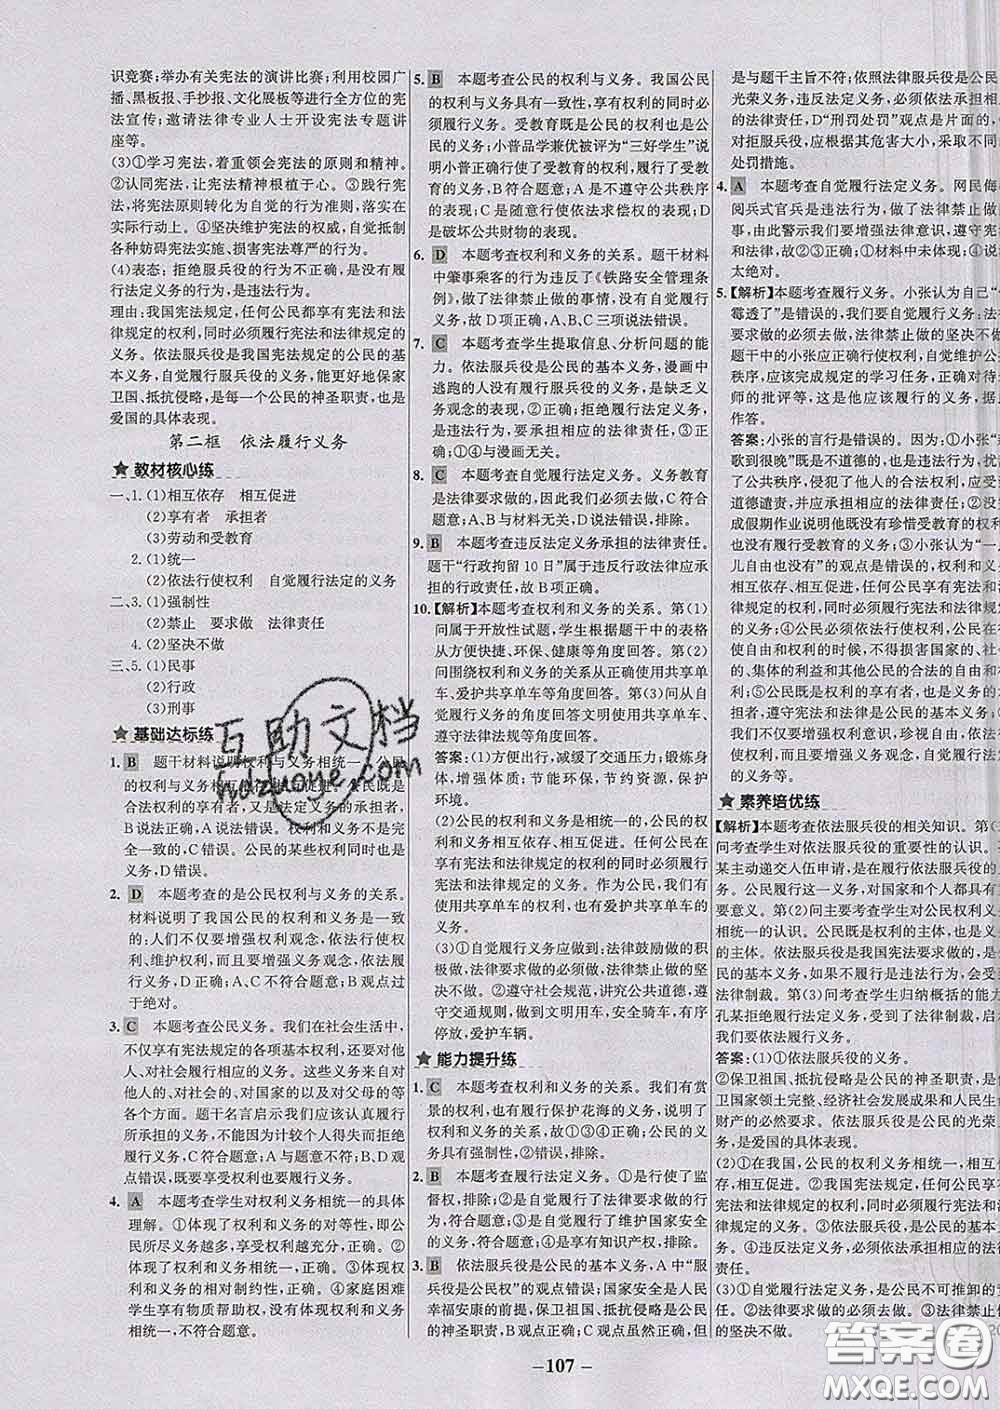 识竞赛;举办有关宪法的演讲比赛;利用校园广
播、黑板报、手抄报、文化展板等进行全方位的宪
法宣传;邀请法律专业人士开设宪法专题讲
座等。
(3)①学习宪法,着重领会宪法的原则和精神。
②认同宪法,让宪法精神根植于心。③践行宪
法,将宪法原则转化为自觉的行为准则,落实在
日常行动中。④坚决维护宪法的权威,自觉抵制
各种妨碍宪法实施、损害宪法尊严的行为。
(4)表态:拒绝服兵役的行为不正确,是没有履
行法定义务的行为,是违法行为。
理由:我国宪法规定,任何公民都享有宪法和法
律规定的权利,同时必须履行宪法和法律规定的
义务。依法服兵役是我国宪法规定的公民的基
本义务,自觉履行服兵役的义务,能更好地保家
卫国、抵抗侵略,是每一个公民的神圣职责,也是
爱国的具体表现。
第二框 依法履行义务
★教材核心练
一、1.(1)相互依存 相互促进
(2)享有者 承担者
(3)劳动和受教育
2.(1)统一
(2)依法行使权利 自觉履行法定的义务
二、3.(1)强制性
(2)禁止 要求做 法律责任
4.(2)坚决不做
三、5.(1)民事
(2)行政
(3)刑事
★基础达标练
1. B 题干材料说明权利与义务相统一,公民
的权利与义务相互依存、相互促进。公民既是
合法权利的享有者,又是法定义务的承担者,
B说法正确,A说法错误。权利和义务不是完
全一致的,C错误。公民的某些权利同时也是
义务,D错误。
2. D 本题考查的是公民权利与义务的关系。
材料说明了我国公民的权利和义务是一致
的:人们不仅要增强权利观念,依法行使权
利、维护权利,而且要增强义务观念,依法履
行义务,D符合题意;A、C不符合题意;B观点过
于绝对。
3. C 本题考查公民义务。我们在社会生活中,
不仅享有宪法规定的各项基本权利,还要对他
人、对社会履行相应的义务。这些义务来自对
他人、对社会的、对国家的以及对父母的等
各个方面。题干名言启示我们应该认真履行
所承担的义务,不能因为计较个人得失而拒绝
履行义务,C符合题意;A与题意不符;B、D
观点错误,既要享受权利也要履行义务。
4. A 本题考查学生对权利义务相统一的具体
理解。①体现了权利和义务的对等性,即公
民所尽义务越多,享受权利越充分,正确。②
体现了权利和义务的相互依存,正确。③体现
了权利和义务的相对制约性,正确。④家庭困难
学生享有物质帮助权,没有体现权利和义务
相统一,不符合题意。
5. B 本题考查公民的权利与义务。我国公民
的权利与义务具有一致性,享有权利的同时必
须履行义务。受教育既是公民的权利也是公
民的义务。小普品学兼优被评为“三好学生”说
明小普正确行使了受教育的权利,履行了受教
育的义务,B符合题意;A是不遵守公共秩序
的表现;C是随意行使依法求偿权的表现;D
是破坏公共财物的表现。
6. D 本题考查权利和义务的关系。题干材料
中肇事乘客的行为违反了《铁路安全管理条
例》,做了法律禁止做的事情,没有自觉履行
义务。故D项正确,A、B、C三项说法错误。
7. C 本题考查学生提取信息、分析问题的能
力。依法服兵役是公民的基本义务,漫画中
逃跑的人没有履行服兵役的义务,是缺乏义
务观念的表现,②正确;拒绝履行法定义务的
行为,要承担相应的法律责任,③正确;
①④与漫画无关。
8. C 本题考查自觉履行法定义务。义务教育
是法律要求做的,因此我们必须去做,C符合
题意;A、B与材料无关,D说法错误,排除。
9. B 本题考查违反法定义务承担的法律责任。
题干“行政拘留10日”属于违反行政法律应承
担的行政责任,故B项正确。
10.【解析】本题考查权利和义务的关系。第(1)
问属于开放性试题,学生根据题干中的表格
从方便快捷、环保、健康等角度回答。第(2)
问围绕权利和义务的关系从正确使用共享单
车、爱护共享单车等角度回答。第(3)问从自
觉履行义务的角度回答文明使用共享单车、
遵守法律法规等角度回答。
答案:(1)方便出行,减缓了交通压力;锻炼身
体,增强体质;节能环保,节约资源,保护
环境。
(2)公民的权利和义务是相统一的,公民的权
利和义务相互依存、相互促进。任何公民在
享有宪法和法律规定的权利的同时,必须履行
宪法和法律规定的义务。作为公民,我们有
使用共享单车的权利,也有爱护共享单车的
义务。
(3)①自觉履行义务应做到:法律鼓励做的积
极做,法律要求做的必须做,法律禁止做的坚
决不做。②遵守社会规范,讲究公共道德,遵
守交通规则,做到文明用车,安全骑车,有序
停放,爱护车辆。
★能力提升练
1. C 本题考查权利和义务的关系。我们有赏
景的权利,也有履行保护花海的义务,说明了
权利与义务相统一,故①③④正确;公民的义
务具有强制性,②错误,排除。
2. B 本题考查履行法定义务。①是行使了监
督权,排除;②是履行了法律要求做的行为,
行为,符合题意;③是自觉履行了维护国家安全
的义务,符合题意;④是享有知识产权,排除。
3. B 依法服兵役是公民的义务,A中“服
兵役是公民权”的观点错误;国家安全是人民
幸福安康的前提,保卫祖国、抵抗侵略是公民
的神圣职责,B观点正确;C观点虽然正确,但
是与题干主旨不符;依照法律服兵役是公民
光荣义务,违反法定义务,必须依法承担
的法律责任,D“刑罚处罚”观点是片面的,
对拒服兵役,应根据其危害大小,采取不同
处罚措施。
4. A 本题考查自觉履行法定义务。网民侮
阅兵式官兵是违法行为,做了法律禁止做
事,由此警示我们要增强法律意识,遵守宪
和法律,故②③正确;①材料中未体现;④说
太绝对。
5.【解析】本题考查履行义务。小张认为自己“
霉透了”是错误的,我们要履行义务:法律
要求做的必须去做,法律禁止做的坚决不
题干中的小张应正确行使权利,自觉履行
务,应该完成规定的学习任务,正确
师的批评等,这就要从增强义务观念
作答。
答案:小张的言行是错误的。因为:①小张“
歌到很晚”是不道德的,也是违法的行为,
了公共秩序,侵犯了他人的合法权益,应受
道德谴责,并应承担相应的法律责任;②
成假期作业说明他没有珍惜受教育的权利
也没有履行受教育的义务;③小张认为“
儿自由也没有”的观点是错误的,因为权利
相互依存、相互促进,任何公民在享有宪法和
规定的权利的同时,必须履行宪法和法律
义务;④公民必须依法行使权利,在行使自
利和自由的时候,不得损害国家的、社会
的、集体的利益和其他公民的合法的自由和
利;⑤公民既是权利的享有者,也是义务的
担者,遵守宪法和法律是公民的基本义务
我们不仅要增强权利观念,依法行使权利、
权利,而且要增强义务观念,自觉履行法
的义务等。
★素养培优练
【解析】本题考查依法服兵役的相关知识。第(
问考查学生对依法服兵役的重要性的认识。
某主动递交入伍申请,是依法履行服兵役的
务。公民履行这一义务,对国家和个人都具有
要意义。第(2)问主要考查学生对公民权利义
一的认识。公民既是权利的主体,也是义
的主体。依法服兵役是我国宪法要求做的,是
民的基本义务,如果不履行是违法行为,会受
法律制裁。第(3)问考查学生归纳概括的能力
孔某拒绝履行义务,受到了法律制裁,启
我们要依法履行义务。
答案:(1)①依法服兵役的义务。
②保卫祖国、抵抗侵略是公民的神圣职责,是
卫国家领土完整、经济社会发展成果和人民生
财产的必要手段,依法服兵役是公民的光荣
务,是爱国的具体表现。
(2)①在我国,公民的权利和义务相统一,相互
存、相互促进。②公民既是合法权利的享有者
是法定义务的承担者。③依法服兵役是公民的
务。④违反法定义务,必须依法承担相应的法
责任。
(3)①自觉履行法定义务,是公民不可推卸的
任。②法律要求做的必须去做。③法律禁止
的坚决不做。
互助文档
hdzuoye.com
—107—
答案圈
MXQE.COM